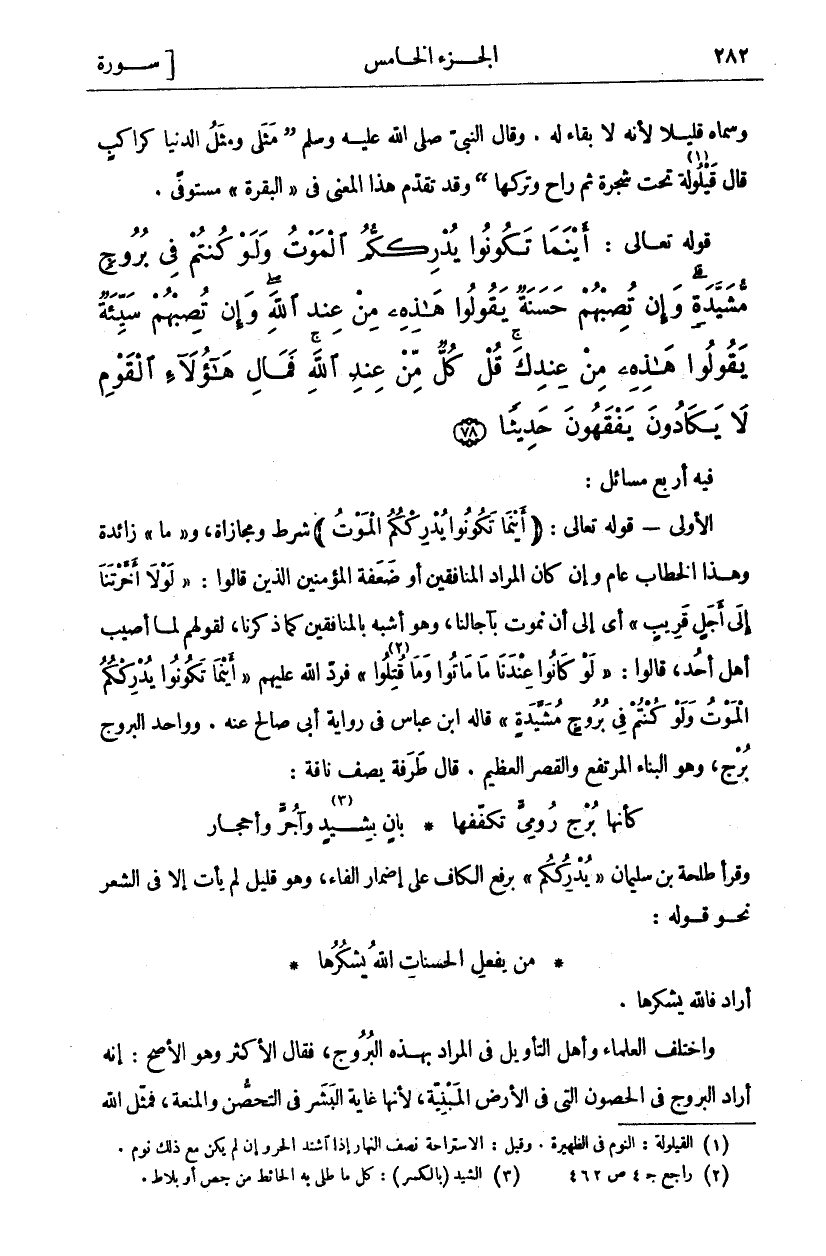 ٢٨٢ الجـــزء الخـامس [ ســـورة
وسماه قليـلا لأنه لا بقاء له . وقال النبىّ صلى الله عليــه وسلم ” مَثَلى ومثَلُ الدنيا كراكبٍ
قال قَيْلُولة (١) تحت شجرة ثم راح وتركها “ وقد تقدّم هذا المعنى فى « البقرة » مستوفًى .
قوله تعـالى : أَيْنَمَا تَكُونُوا يُدْرِككُّمُ ٱلْمَوْتُ وَلَوْ كُنتُمْ فِى بُرُوجٍ
مُّشَيَّدَةٍ ۗ وَإِن تُصِبْهُمْ حَسَنَةٌ يَقُولُوا هَـٰذِهِۦ مِنْ عِندِ ٱللَّهِ ۖ وَإِن تُصِبْهُمْ سَيِّئَةٌ
يَقُولُوا هَـٰذِهِۦ مِنْ عِندِكَ ۚ قُلْ كُلٌّ مِّنْ عِندِ ٱللَّهِ ۚ فَمَالِ هَـٰٓؤُلَآءِ ٱلْقَوْمِ
لَا يَكَادُونَ يَفْقَهُونَ حَدِيثًا ﴿٧٨﴾
فيه أربع مسائل :
الأولى — قوله تعالى : ﴿ أَيْنَمَا تَكُونُوا يُدْرِكْكُمُ الْمَوْتُ ﴾ شرط ومجازاة، و« ما » زائدة
وهـذا الخطاب عام وإن كان المراد المنافقين أو ضَعَفة المؤمنين الذين قالوا : « لَوْلَا أَخَّرْتَنَا
إِلَى أَجَلٍ قَرِيبٍ » أى إلى أن نموت بآجالنا، وهو أشبه بالمنافقين كما ذكرنا، لقولهم لمـا أصيب
أهل أُحُد، قالوا : « لَوْ كَانُوا عِنْدَنَا مَا مَاتُوا وَمَا قُتِلُوا (٢) » فردّ الله عليهم « أَيْنَمَا تَكُونُوا يُدْرِكْكُمُ
الْمَوْتُ وَلَوْ كُنْتُمْ فِى بُرُوجٍ مُشَيَّدَةٍ » قاله ابن عباس فى رواية أبى صالح عنه . وواحد البروج
بُرْج، وهو البناء المرتفع والقصر العظيم . قال طَرَفة يصف ناقة :
كأنها بُرْج رُومِىٍّ تكفّفها * بانٍ بِشِــيدٍ (٣) وآجُرٍّ وأحجـار
وقرأ طلحة بن سليمان « يُدْرِكُكُم » برفع الكاف على إضمار الفاء، وهو قليل لم يأت إلا فى الشعر
نحـو قـوله :
* من يفعلِ الحسناتِ اللهُ يشكُرُها *
أراد فالله يشكرها .
واختلف العلماء وأهل التأويل فى المراد بهــذه البُرُوج، فقال الأكثر وهو الأصح : إنه
أراد البروج فى الحصون التى فى الأرض المَبْنِيّة، لأنها غاية البَشَر فى التحصُّن والمنعة، فمثّل الله
(١) القيلولة : النوم فى الظهيرة . وقيل : الاستراحة نصف النهار إذا آشتد الحر وإن لم يكن مع ذلك نوم .
(٢) راجع جـ ٤ ص ٤٦٢ (٣) الشيد (بالكسر) : كل ما طلى به الحائط من جص أو بلاط .